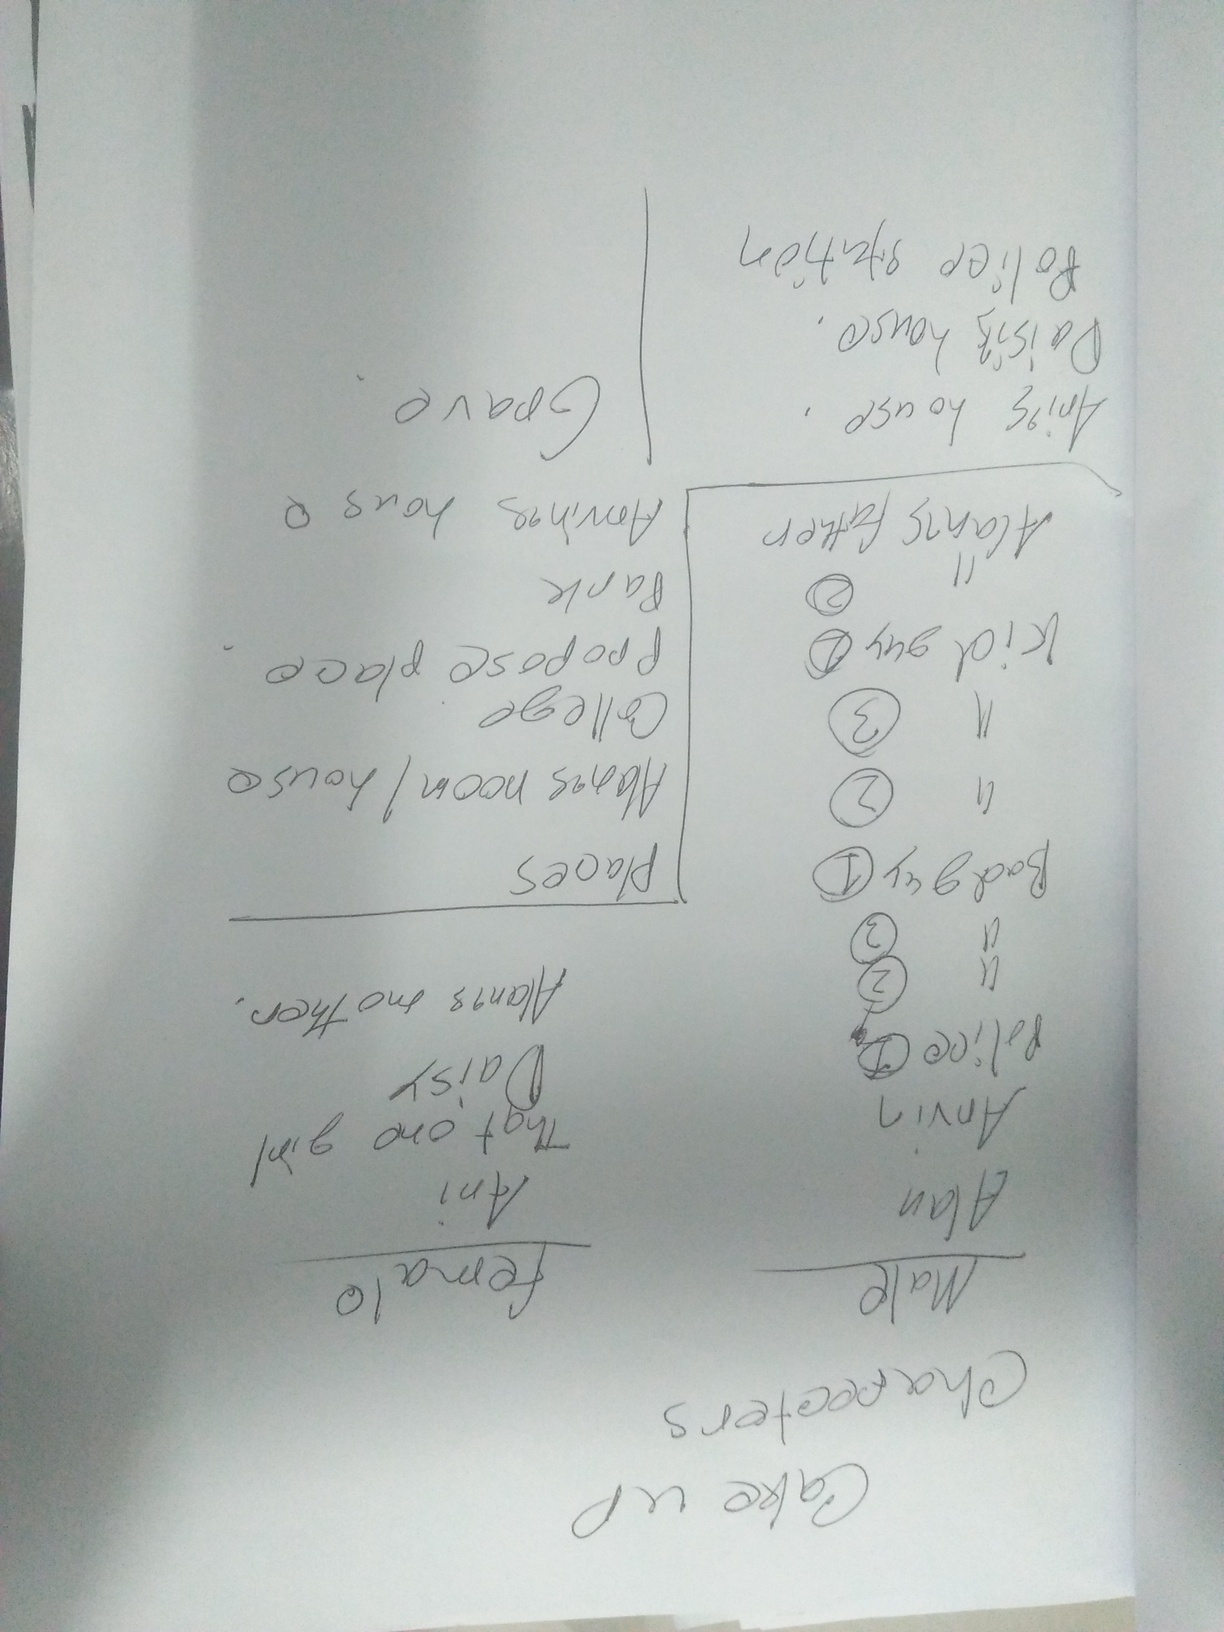 Cake up
Charecters
Male
Alan
Arvin
Police 1
" 2
" 3
Bad guy 1
" 2
" 3
Kid guy 1
" 2
Alan's father
Female
Ani
That one girl
Daisy
Alan's mother.
Places
Alan's room/house
College
Propose place.
Park
Arvin's house
Grave.
Ani's house.
Daisi's house.
Police station